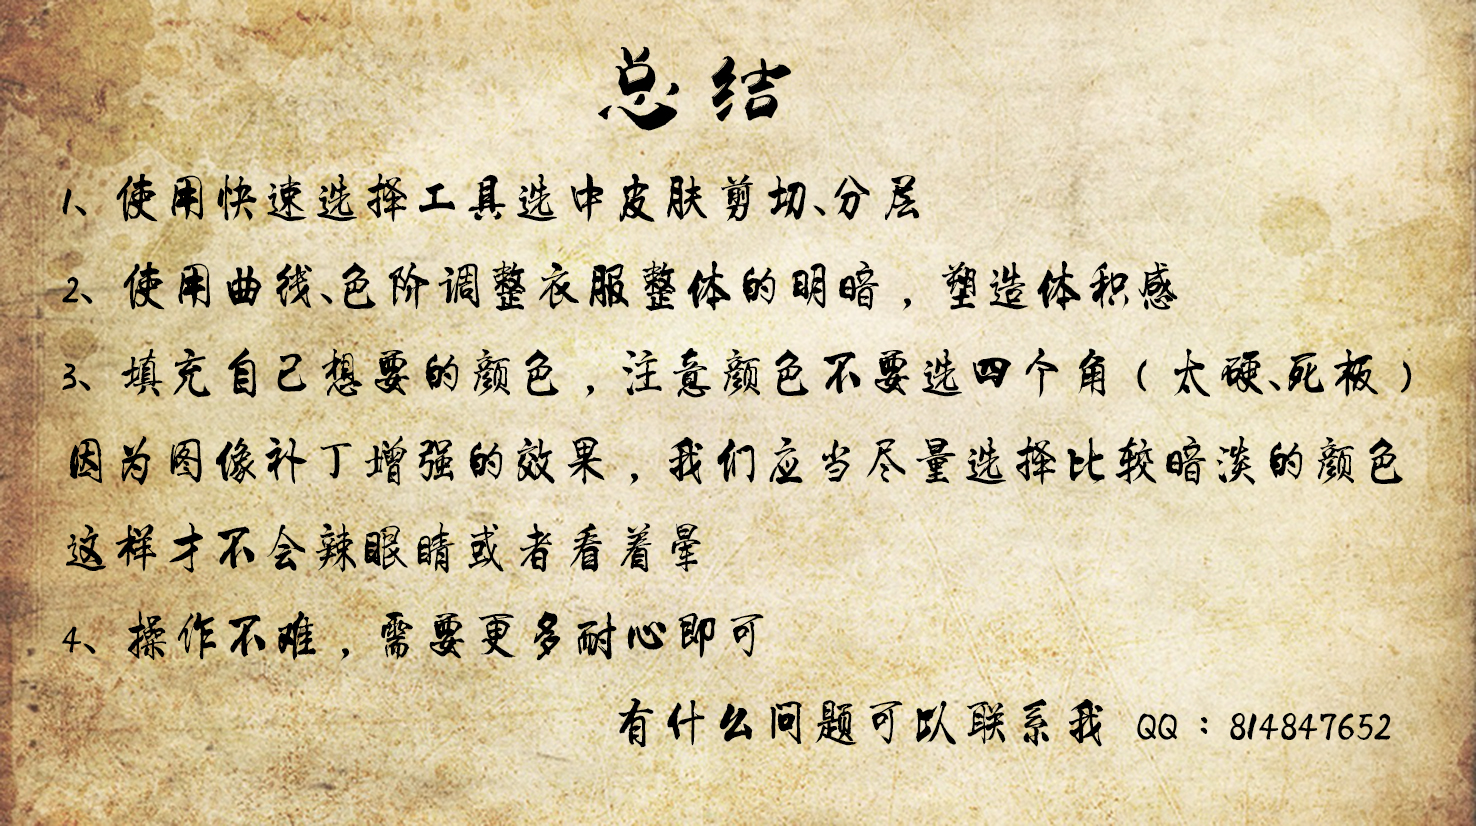 总结
1、使用快速选择工具选中皮肤剪切、分层
2、使用曲线、色阶调整衣服整体的明暗，塑造体积感
3、填充自己想要的颜色，注意颜色不要选四个角（太硬、死板）
因为图像补丁增强的效果，我们应当尽量选择比较暗淡的颜色
这样才不会辣眼睛或者看着晕
4、操作不难，需要更多耐心即可
有什么问题可以联系我 QQ：814847652